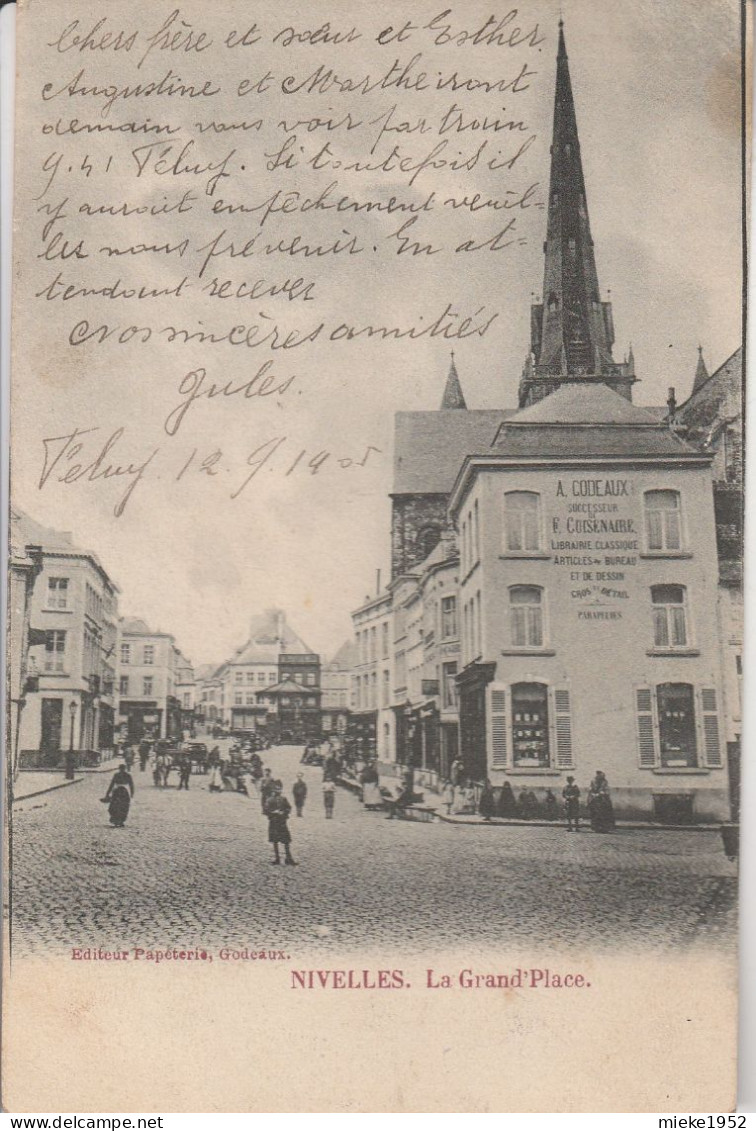 Chers frère et sœur et Esther
Augustine et Marthe iront
demain vous voir par train
9.41 Féluy. Si toutefois il
y aurait empêchement veuil=
lez nous prévenir. En at=
tendant recever
nos sincères amitiés
Jules.
Féluy 12.9.1905
A. GODEAUX
SUCCESSEUR
DE
F. CUISENAIRE.
LIBRAIRIE CLASSIQUE
ARTICLES DE BUREAU
ET DE DESSIN
GROS ET DETAIL
PARAPLUIES
Editeur Papéterie, Godeaux.
NIVELLES. La Grand'Place.
mieke1952